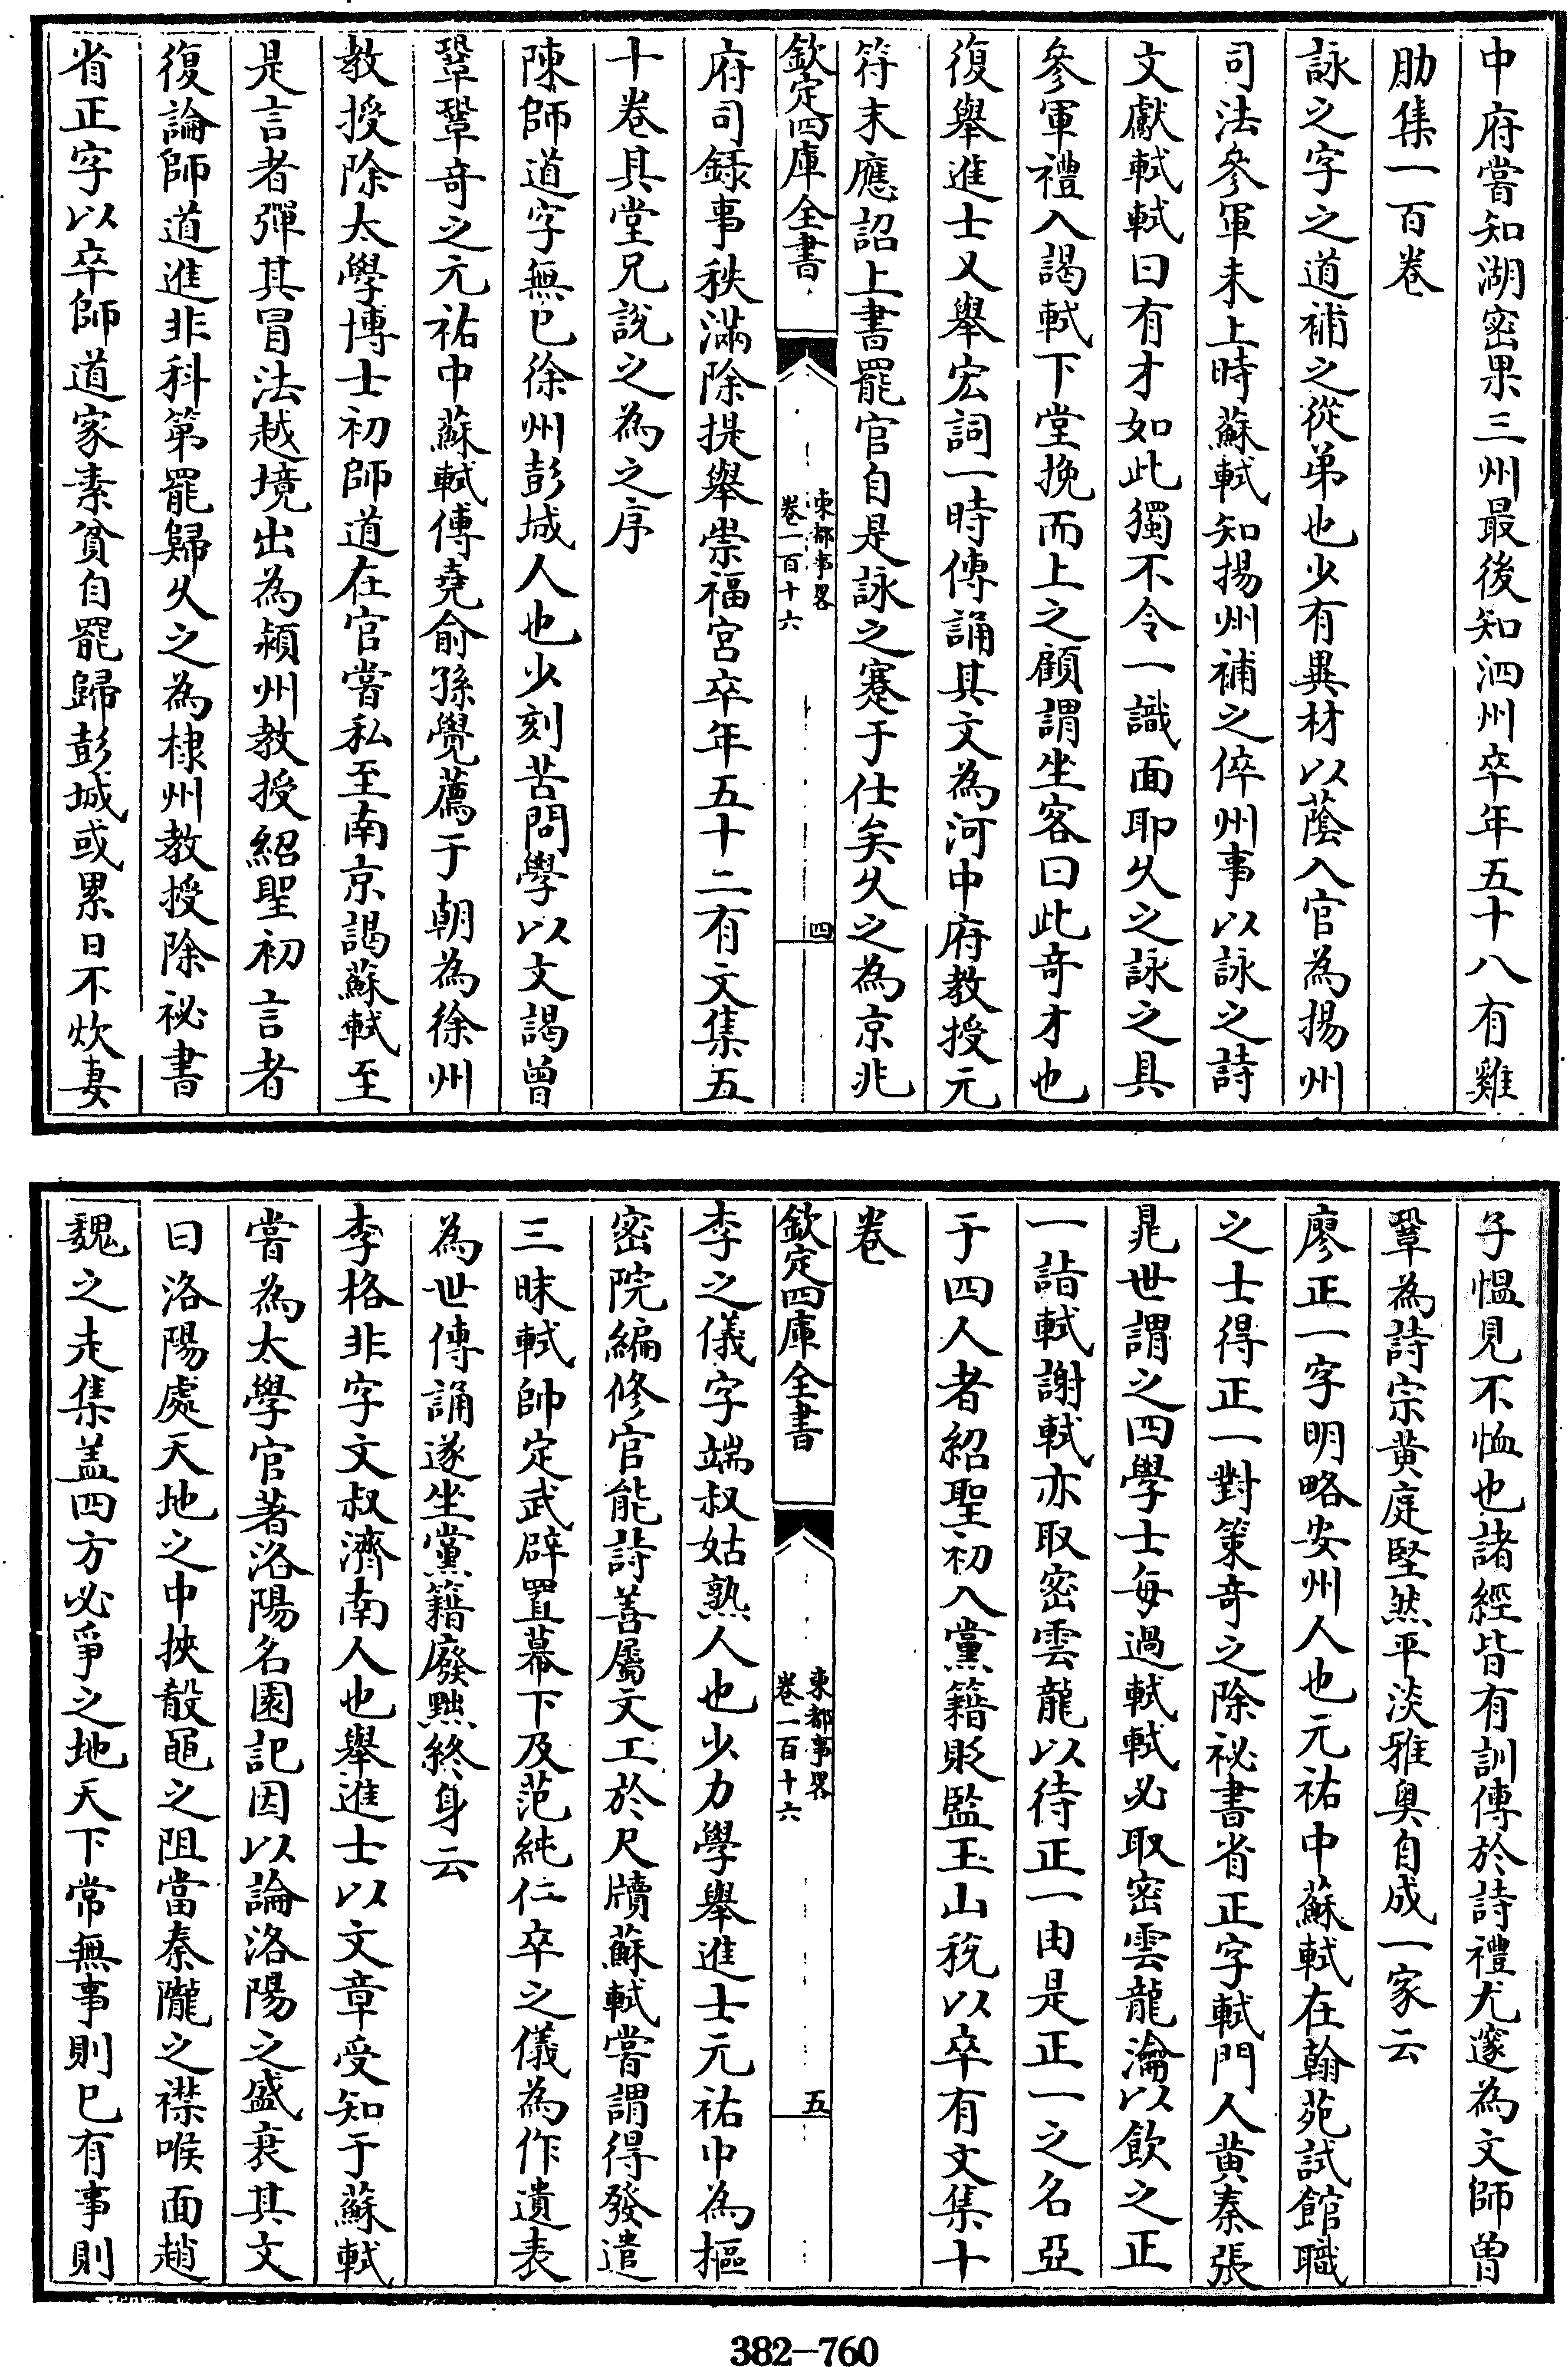 中府嘗知湖密果三州最後知泗州卒年五十八有雞
肋集一百卷
詠之字之道補之從弟也少有異材以蔭入官為揚州
司法參軍未上時蘇軾知揚州補之倅州事以詠之詩
文獻軾軾曰有才如此獨不令一識面耶久之詠之具
參軍禮入謁軾下堂挽而上之顧謂坐客曰此奇才也
復舉進士又舉宏詞一時傳誦其文為河中府教授元
符末應詔上書罷官自是詠之蹇于仕矣久之為京兆
欽定四庫全書
東都事畧
卷一百十六
四
府司録事秩滿除提舉崇福宮卒年五十二有文集五
十卷其堂兄說之為之序
陳師道字無已徐州彭城人也少刻苦問學以文謁曾
鞏鞏奇之元祐中蘇軾傅堯俞孫覺薦于朝為徐州
教授除太學博士初師道在官嘗私至南京謁蘇軾至
是言者彈其冒法越境出為潁州教授紹聖初言者
復論師道進非科第罷歸久之為棣州教授除祕書
省正字以卒師道家素貧自罷歸彭城或累日不炊妻
子慍見不恤也諸經皆有訓傳於詩禮尤邃為文師曾
鞏為詩宗黄庭堅然平淡雅奥自成一家云
廖正一字明略安州人也元祐中蘇軾在翰苑試館職
之士得正一對策奇之除祕書省正字軾門人黄秦張
晁世謂之四學士每過軾軾必取密雲龍瀹以飲之正
一詣軾謝軾亦取密雲龍以待正一由是正一之名亞
于四人者紹聖初入黨籍貶監玉山稅以卒有文集十
卷
欽定四庫全書
東都事畧
卷一百十六
五
李之儀字端叔姑熟人也少力學舉進士元祐中為樞
密院編修官能詩善屬文工於尺牘蘇軾嘗謂得發遣
三昧軾帥定武辟置幕下及范純仁卒之儀為作遺表
為世傳誦遂坐黨籍廢黜終身云
李格非字文叔濟南人也舉進士以文章受知于蘇軾
嘗為太學官著洛陽名園記因以論洛陽之盛衰其文
曰洛陽處天地之中挾殽黽之阻當秦隴之襟喉而趙
魏之走集盖四方必爭之地天下常無事則已有事則
382-760